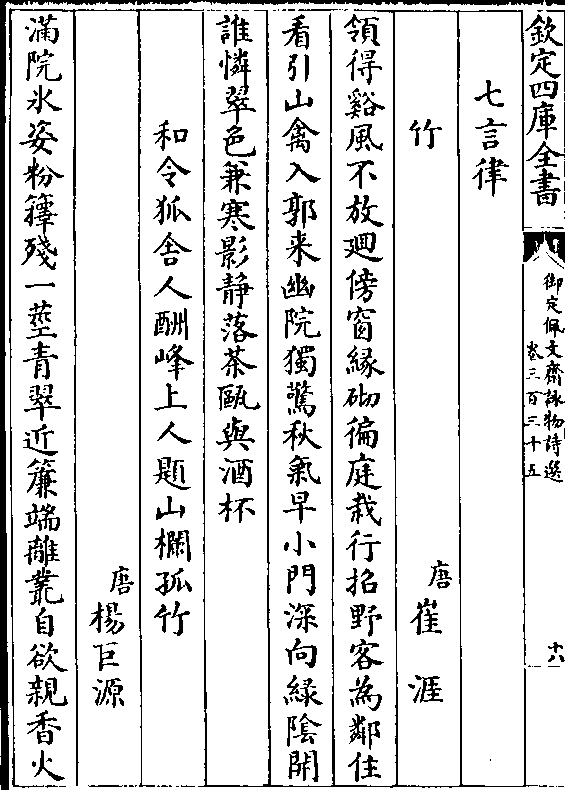 欽定四庫全書
御定佩文齋詠物詩選
卷三百三十五
十八
七言律
竹
唐崔涯
領得谿風不放廻傍窗縁砌徧庭栽行招野客為鄰住
看引山禽入郭来幽院獨驚秋氣早小門深向緑陰開
誰憐翠色兼寒影静落茶甌與酒杯
和令狐舍人酬峰上人題山欄孤竹
唐楊巨源
滿院氷姿粉籜殘一莖青翠近簾端離叢自欲親香火